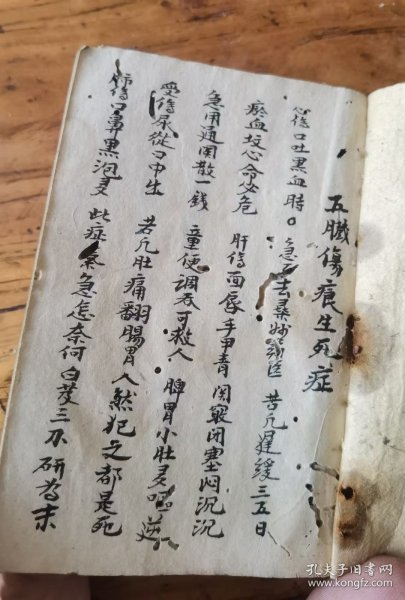 五臟傷損生死症
心傷口吐黑血時。急 去 妙 医 苦凡遲緩三五日
瘀血攻心命必危 肝傷面唇手甲青 関竅閉塞悶沉沉
急用通関散一錢 童便調吞可救人 脾胃小肚受 逆
受傷尿從口中生 若凡肚痛翻腸胃 人然犯之都是死
肺傷口鼻黑泡 此症緊急怎奈何 白芨三 研為末
孔夫子旧书网
www.kongfz.com